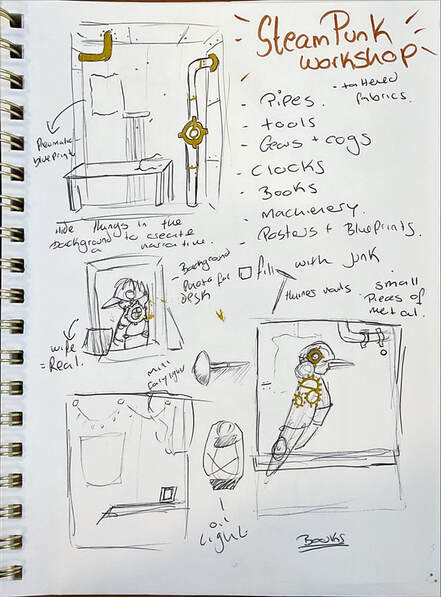 SteamPunk
workshop
- Pipes.
- tattered
fabrics.
- tools
- Gears + cogs
- Clocks
- Books
- Machinery.
- Posters + Blueprints.
blueprint
Hide things in the
background to create
a narrative.
- Background
Photo for
Desk
fill with junk
things
small
Pieces of
metal.
wife
= Real.
mini
fairylight
oil
light
Books